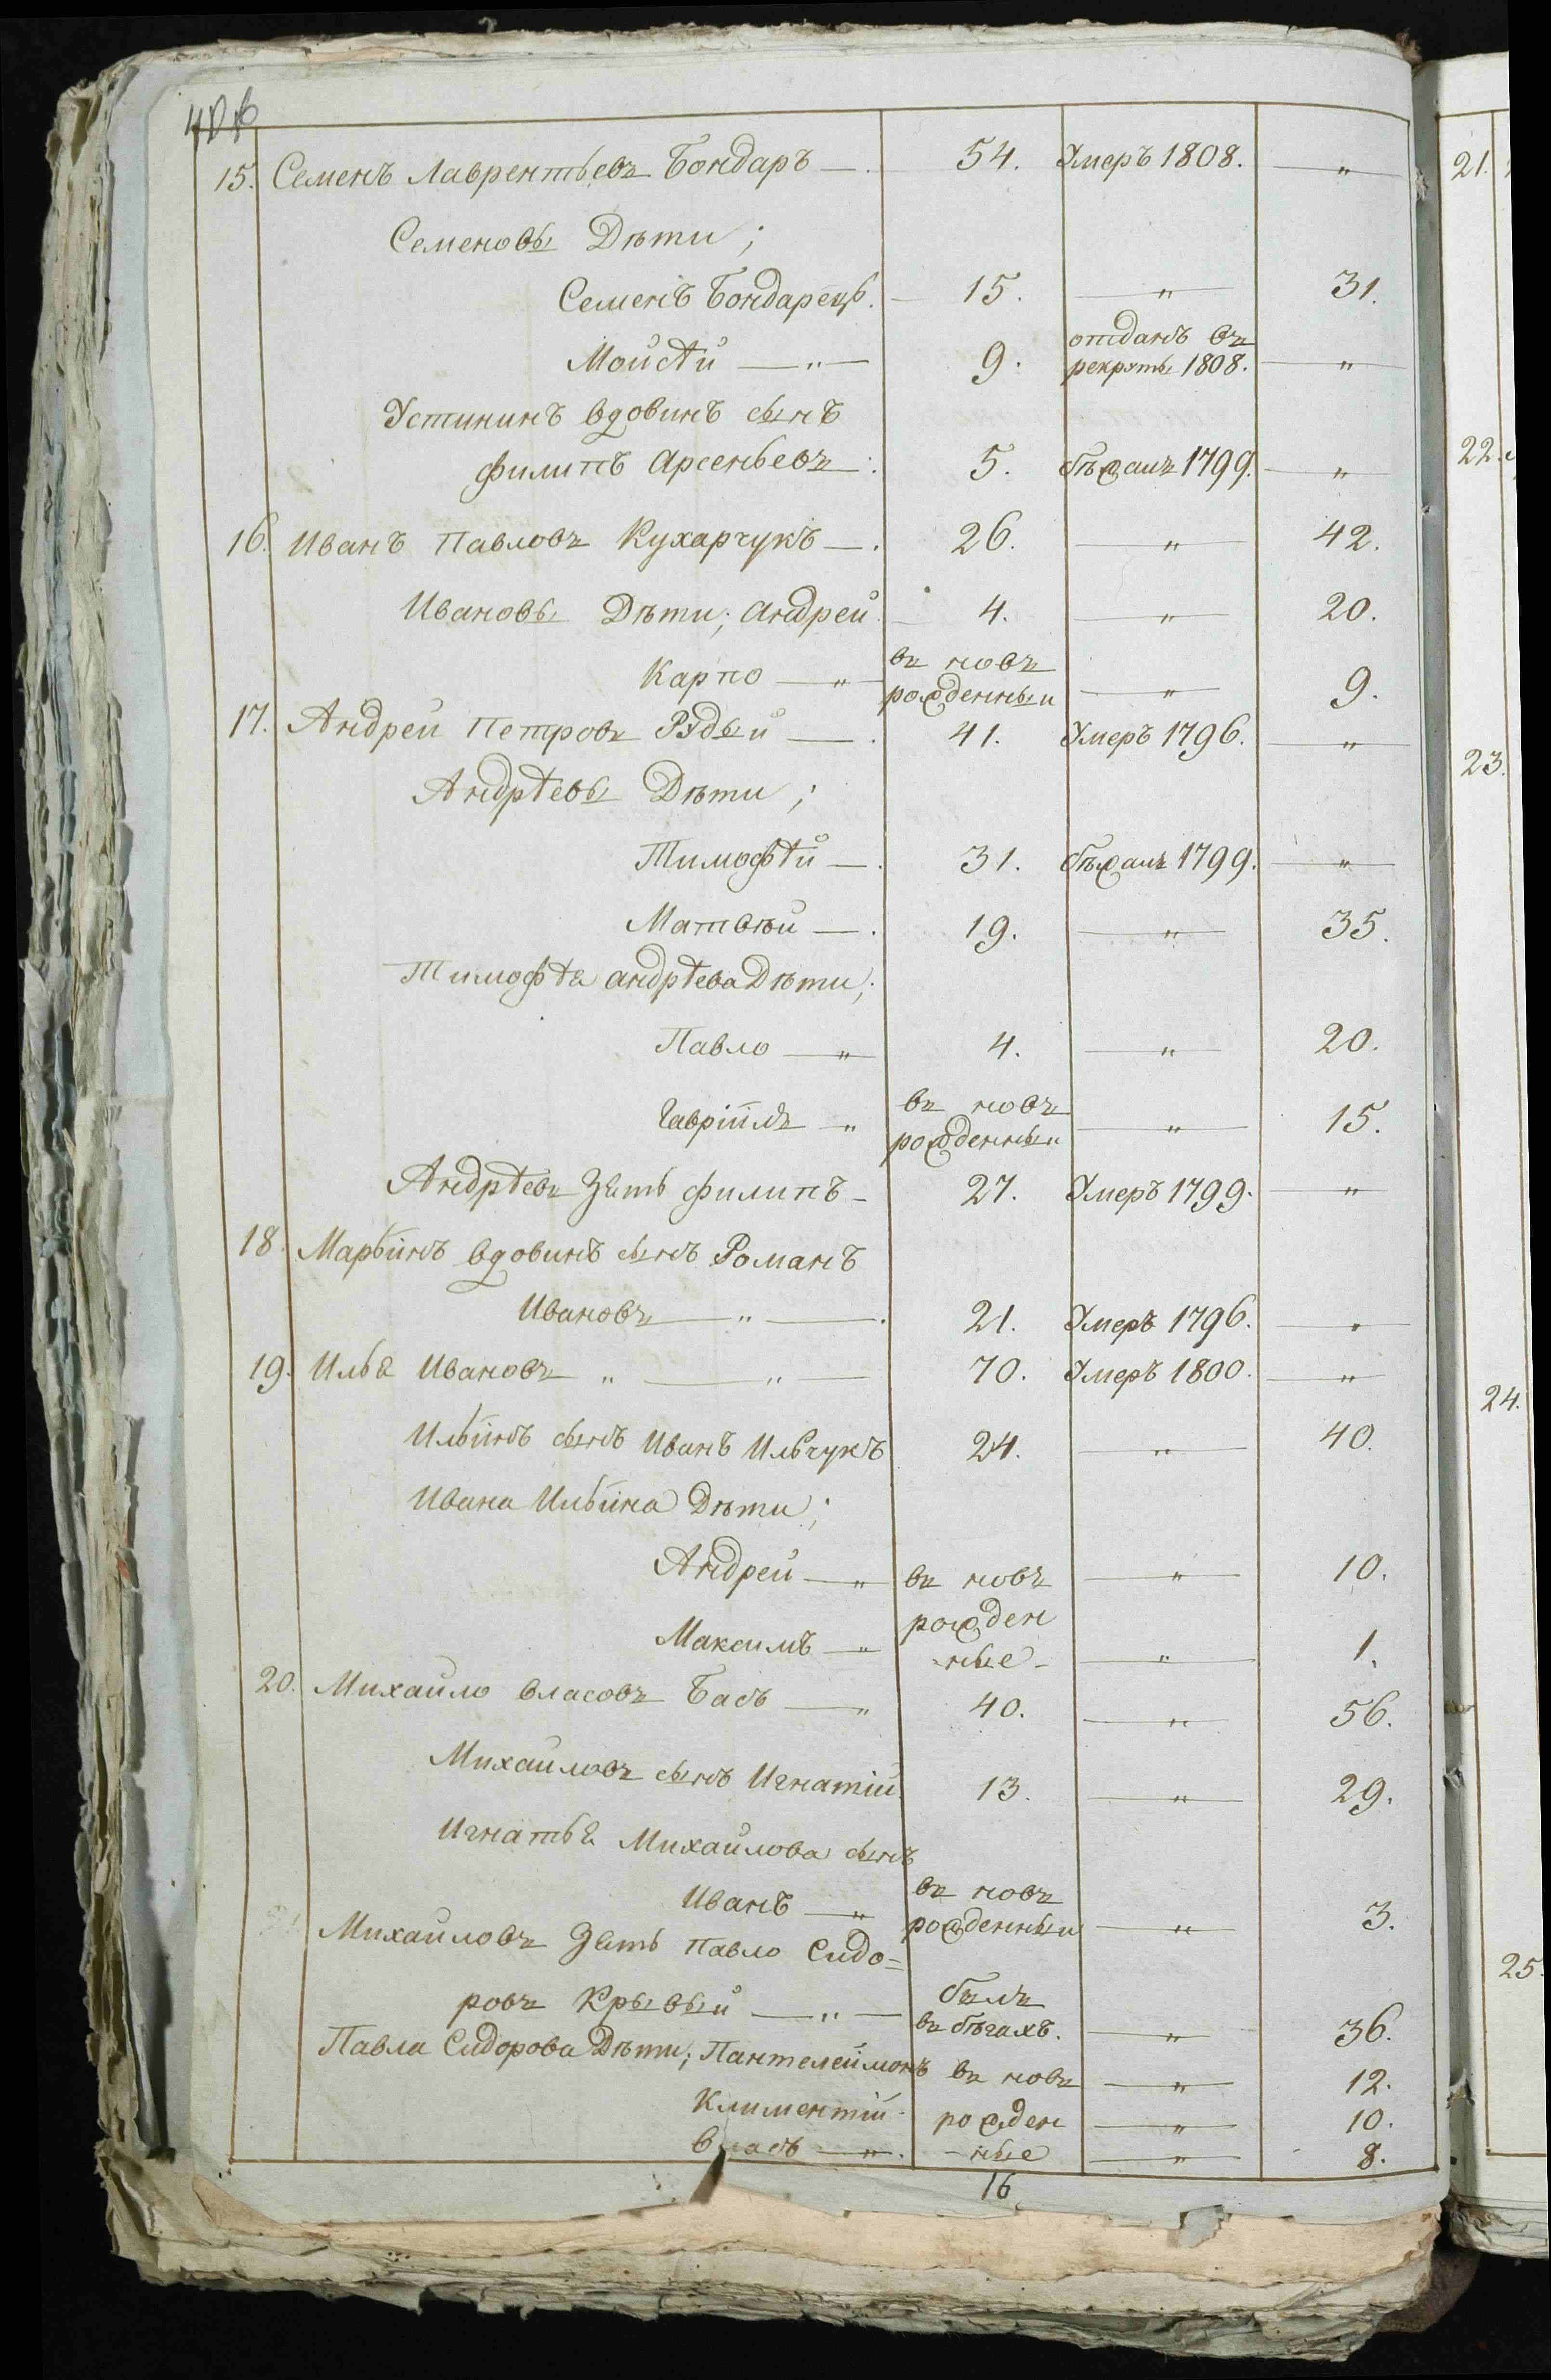 15. Семенъ Лаврентьевъ Бондаръ — 54. Умеръ 1808. — „
Семеновы Дѣти;
Семенъ Бондарецъ. — 15. — „ — 31.
Мойсѣй — „ — 9. отданъ въ
рекруты 1808. — „
Устининъ вдовинъ сынъ
Филипъ Арсеньевъ 5. бѣжалъ 1799. — „
16. Иванъ Павловъ Кухарчукъ — . 26. — „ — 42.
Ивановы Дѣти; Андрей — 4. — „ — 20.
Карпо — „ въ новъ
рожденный — „ — 9.
17. Андрей Петровъ Рудый — . 41. Умеръ 1796. — „
Андрѣевы Дѣти;
Тимофѣй — . 31. бѣжалъ 1799. — „
Матвѣй — . 19. — „ — 35.
Тимофѣя Андрѣева Дѣти;
Павло — „ — 4. — „ — 20.
Гавріилъ — „ въ новъ
рожденный — „ — 15.
Андрѣевъ Зять Филипъ — 27. Умеръ 1799. — „
18. Марьинъ вдовинъ сынъ Романъ
Ивановъ — „ — . 21. Умеръ 1796. — „
19. Илья Ивановъ „ — „ — 70. Умеръ 1800. — „
Ильинъ сынъ Иванъ Ильчукъ 24. — „ — 40.
Ивана Ильина Дѣти;
Андрей — „ въ новъ — „ — 10.
рожден
Максимъ — „ ные — — „ — 1.
20. Михайло Власовъ Басъ — „ 40. — „ — 56.
Михайловъ сынъ Игнатій 13. — „ — 29.
Игнатья Михайлова сынъ
Иванъ — „ въ новъ
рожденный — „ — 3.
Михайловъ Зять Павло Сидо=
ровъ Крывый — „ — былъ
въ бѣгахъ. — „ — 36.
Павла Сидорова Дѣти; Пантелеймонъ въ новъ — „ — 12.
Климентій рожден — „ — 10.
Власъ — „ . — ные — „ — 8.
16
21.
22.
23.
24.
25.